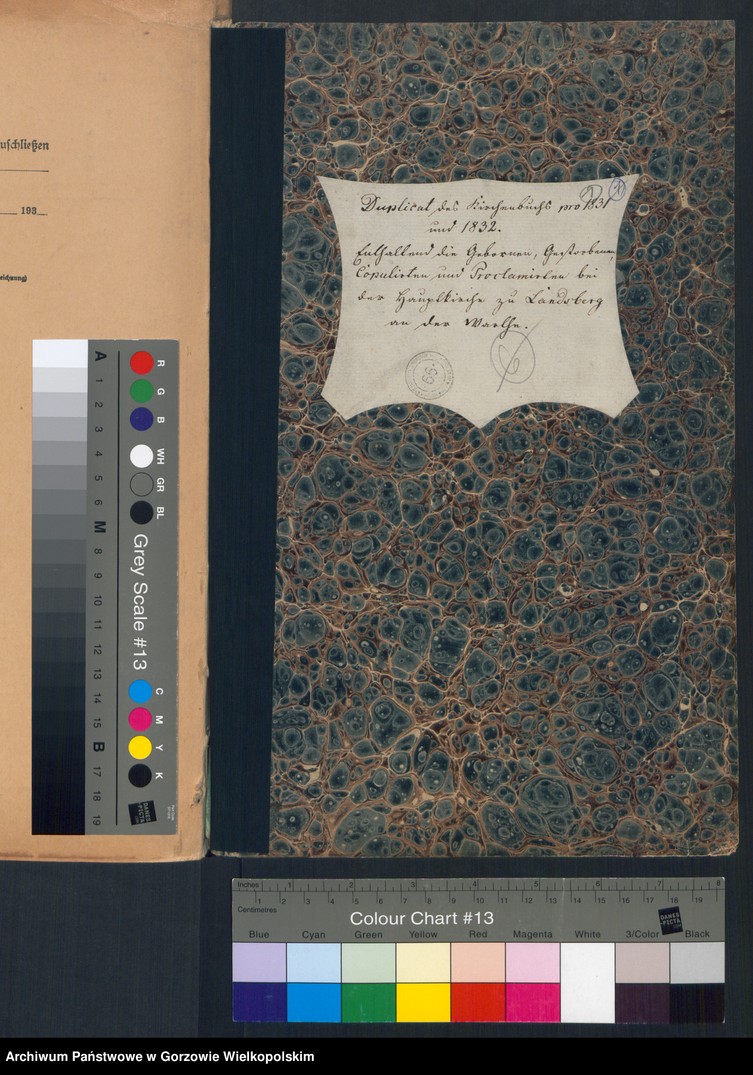 uschließen
193
Duplicat des Kirchenbuchs pro 1831
und 1832.
Enthaltend die Gebornen, Gestorbenen,
Copulirten und Proclamirten bei
der Hauptkirche zu Landsberg
an der Warthe.
66
A 1 2 3 4 5 6 M 8 9 10 11 12 13 14 15 B 17 18 19
R G B WH GR BL
Grey Scale #13
C M Y K
DANES
-PICTA
.COM
Inches 1 2 3 4 5 6 7 8
1 2 3 4 5 6 7 8 9 10 11 12 13 14 15 16 17 18 19
Centimetres
Colour Chart #13
DANES
-PICTA
.COM
Blue Cyan Green Yellow Red Magenta White 3/Color Black
Archiwum Państwowe w Gorzowie Wielkopolskim